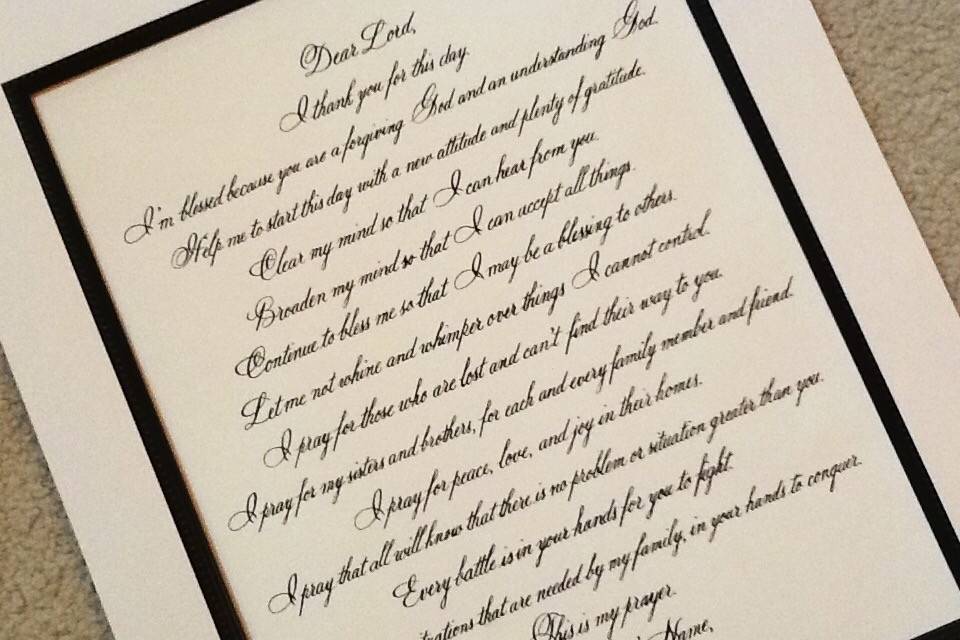 Dear Lord,
I thank you for this day.
I'm blessed because you are a forgiving God and an understanding God.
Help me to start this day with a new attitude and plenty of gratitude.
Clear my mind so that I can hear from you.
Broaden my mind so that I can accept all things.
Continue to bless me so that I may be a blessing to others.
Let me not whine and whimper over things I cannot control.
I pray for those who are lost and can't find their way to you.
I pray for my sisters and brothers, for each and every family member and friend.
I pray for peace, love, and joy in their homes.
I pray that all will know that there is no problem or situation greater than you.
Every battle is in your hands for you to fight.
that are needed by my family, in your hands to conquer.
This is my prayer.
Name,